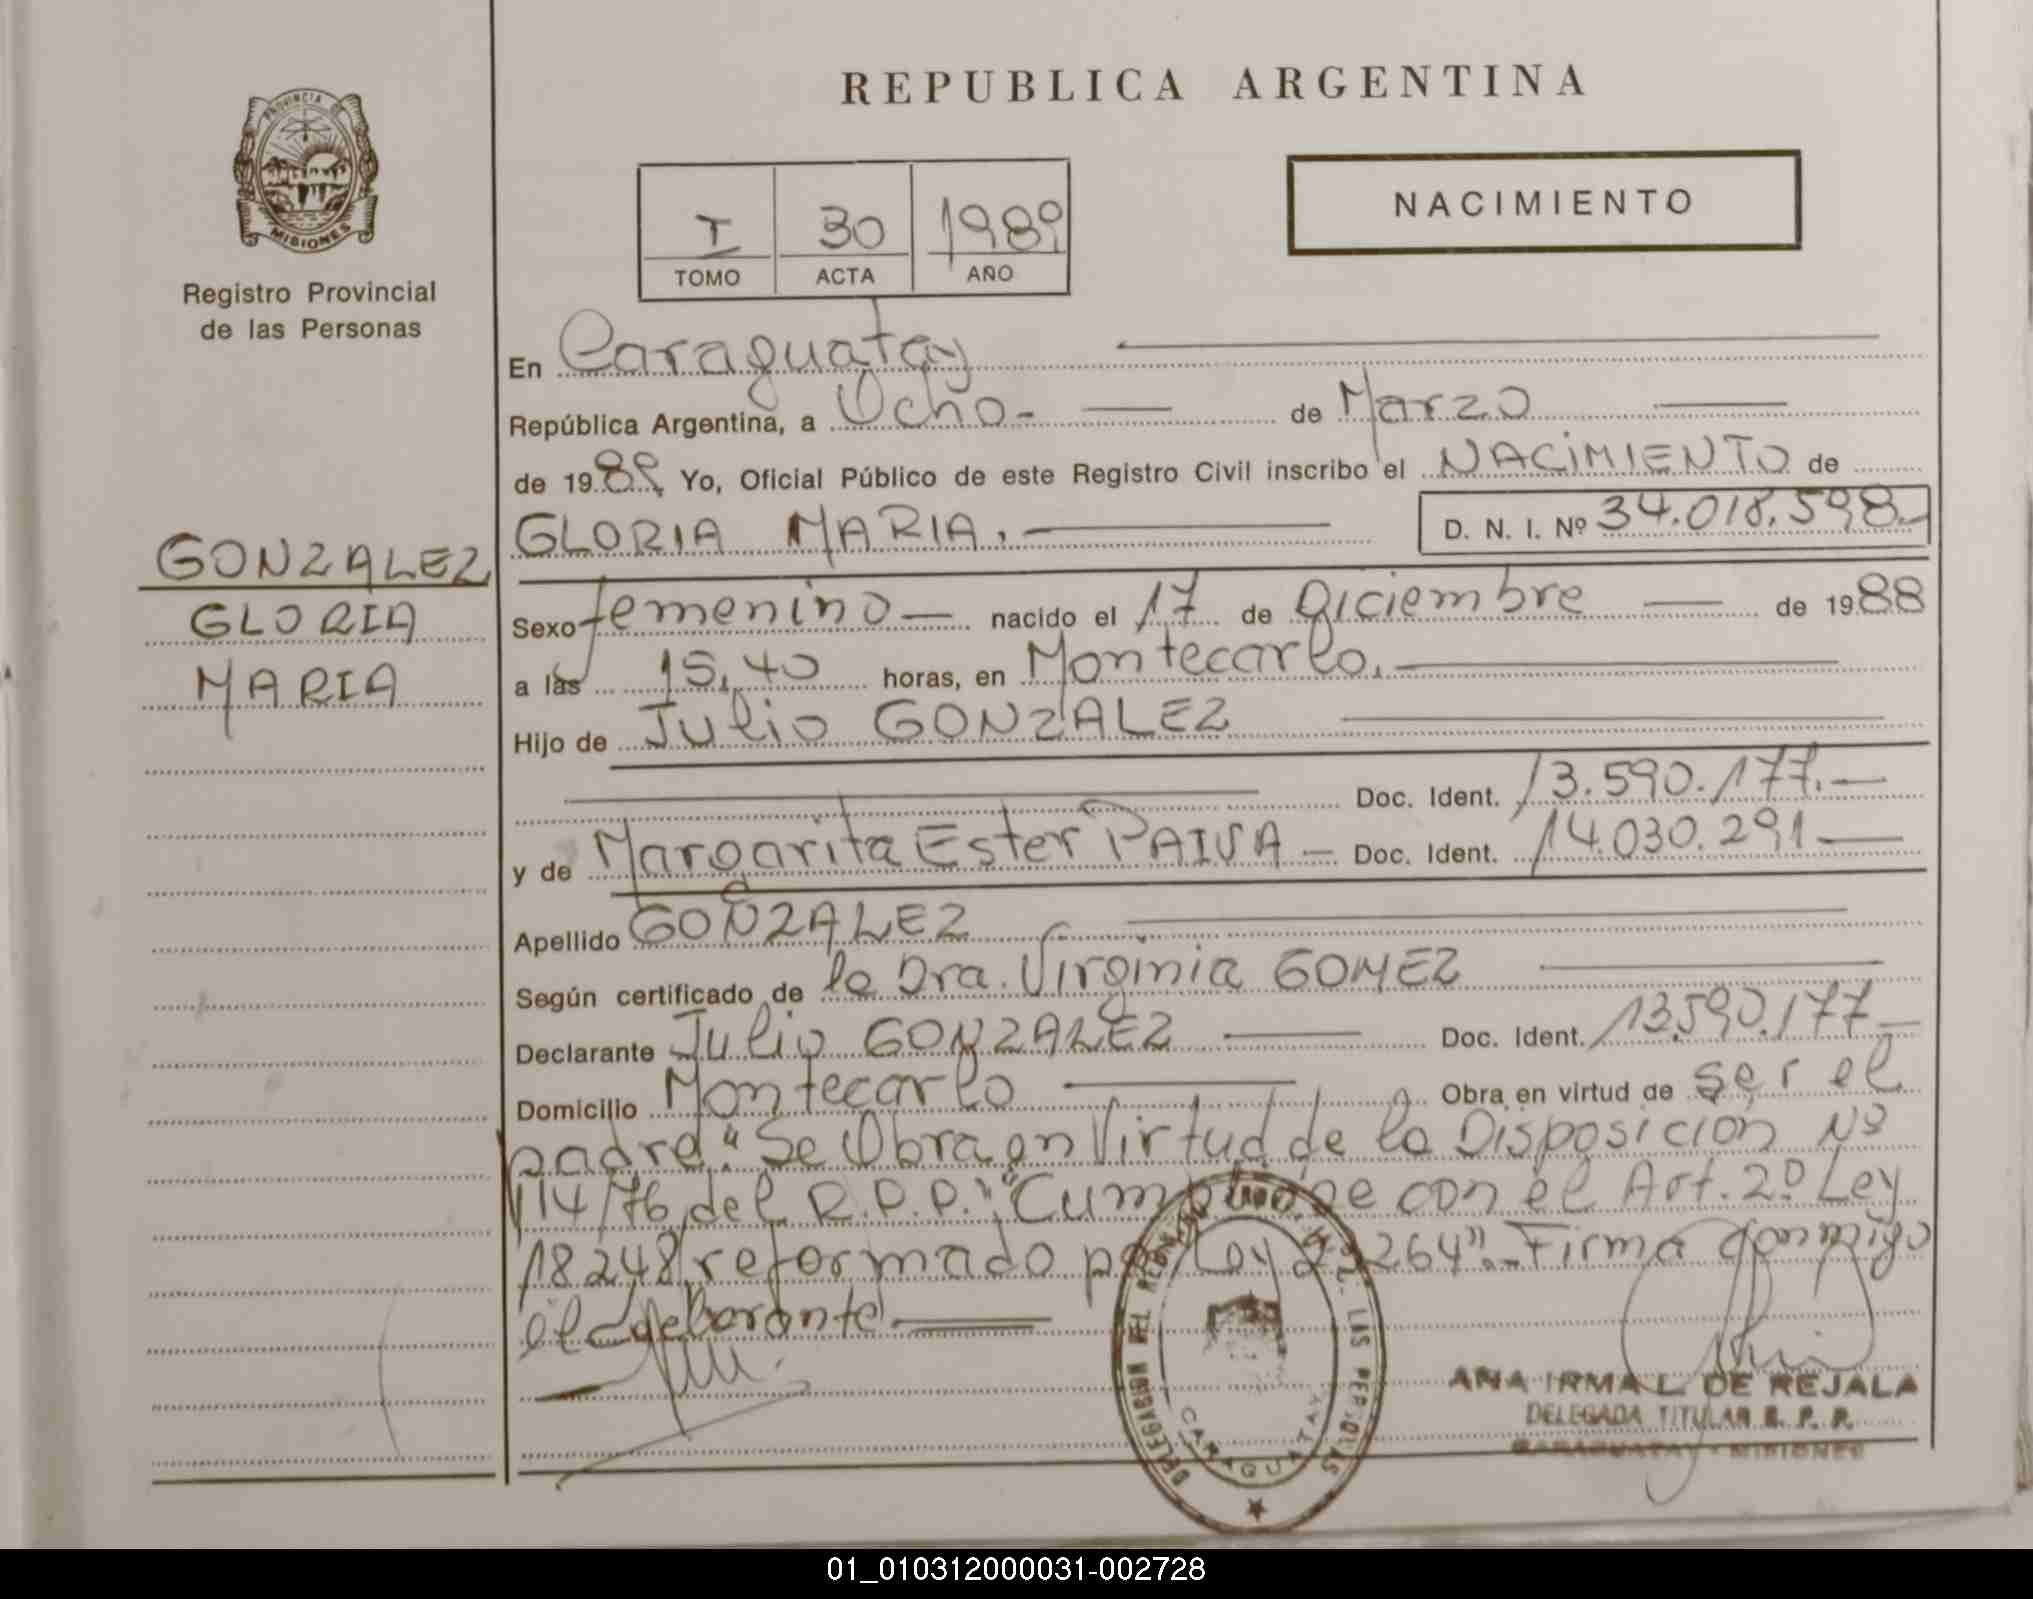 REPUBLICA ARGENTINA
PROVINCIA DE
MISIONES
Registro Provincial
de las Personas
NACIMIENTO
I 30 1989
TOMO ACTA AÑO
En Caraguatay
República Argentina, a Ocho- de Marzo
de 1989 Yo, Oficial Público de este Registro Civil inscribo el NACIMIENTO de
GLORIA MARIA. D. N. I. Nº 34.018.598.-
GONZALEZ
GLORIA
MARIA
Sexo femenino nacido el 17 de Diciembre de 1988
a las 15,40 horas, en Montecarlo.
Hijo de Julio GONZALEZ
Doc. Ident. 13.590.177.
y de Margarita Ester PAIVA Doc. Ident. 14.030.291
Apellido GONZALEZ
Según certificado de la Dra. Virginia GOMEZ
Declarante Julio GONZALEZ Doc. Ident. 13.590.177
Domicilio Montecarlo Obra en virtud de ser el
padre. "Se Obra en Virtud de la Disposición Nº
114/76 del R.P.P." "Cumplióse con el Art. 2º Ley
18248 reformado por Ley 23264".- Firma conmigo
el declarante
DELEGACION DEL REGISTRO PROV. DE LAS PERSONAS
CARAGUATAY
ANA IRMA L. DE REJALA
DELEGADA TITULAR R. P. P.
CARAGUATAY - MISIONES
01_010312000031-002728